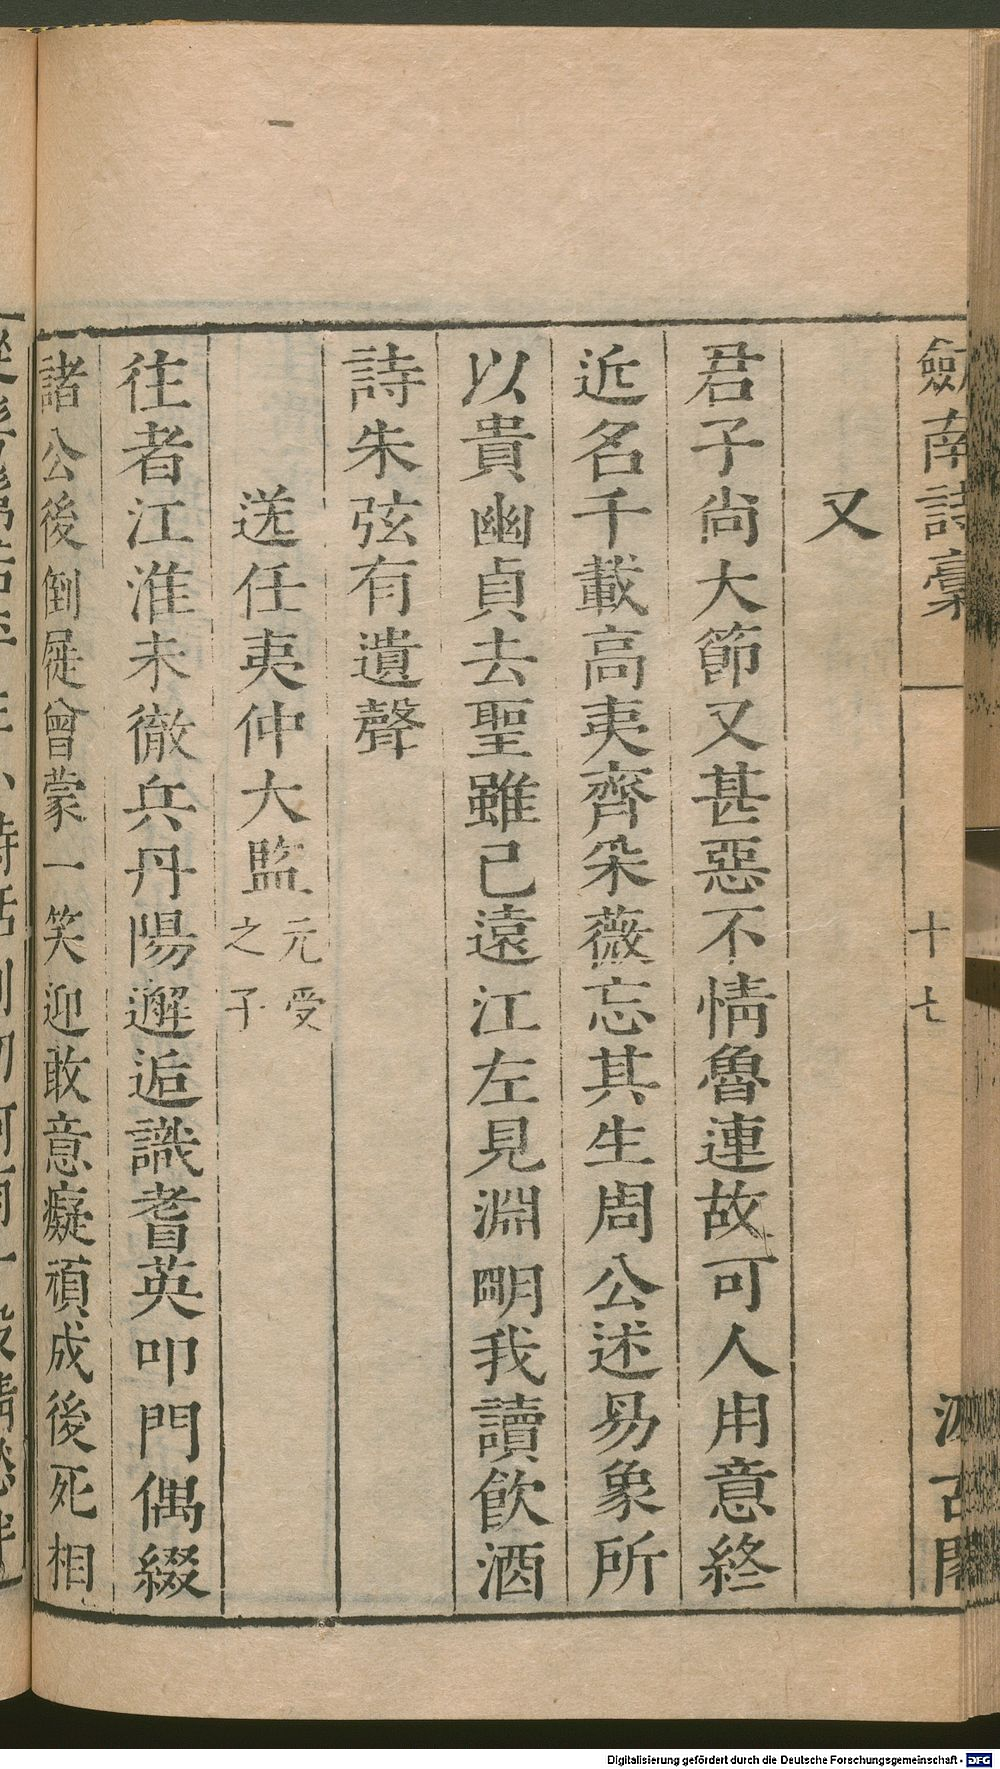 劒南詩藳
十七
汲古閣
又
君子尚大節又甚惡不情魯連故可人用意終
近名千載高夷齊朵薇忘其生周公述易象所
以貴幽貞去聖雖已遠江左見淵明我讀飲酒
詩朱弦有遺聲
送任夷仲大監元受之子
往者江淮未徹兵丹陽邂逅識耆英叩門偶綴
諸公後倒屣曾蒙一笑迎敢意癡頑成後死相
Digitalisierung gefördert durch die Deutsche Forschungsgemeinschaft - DFG